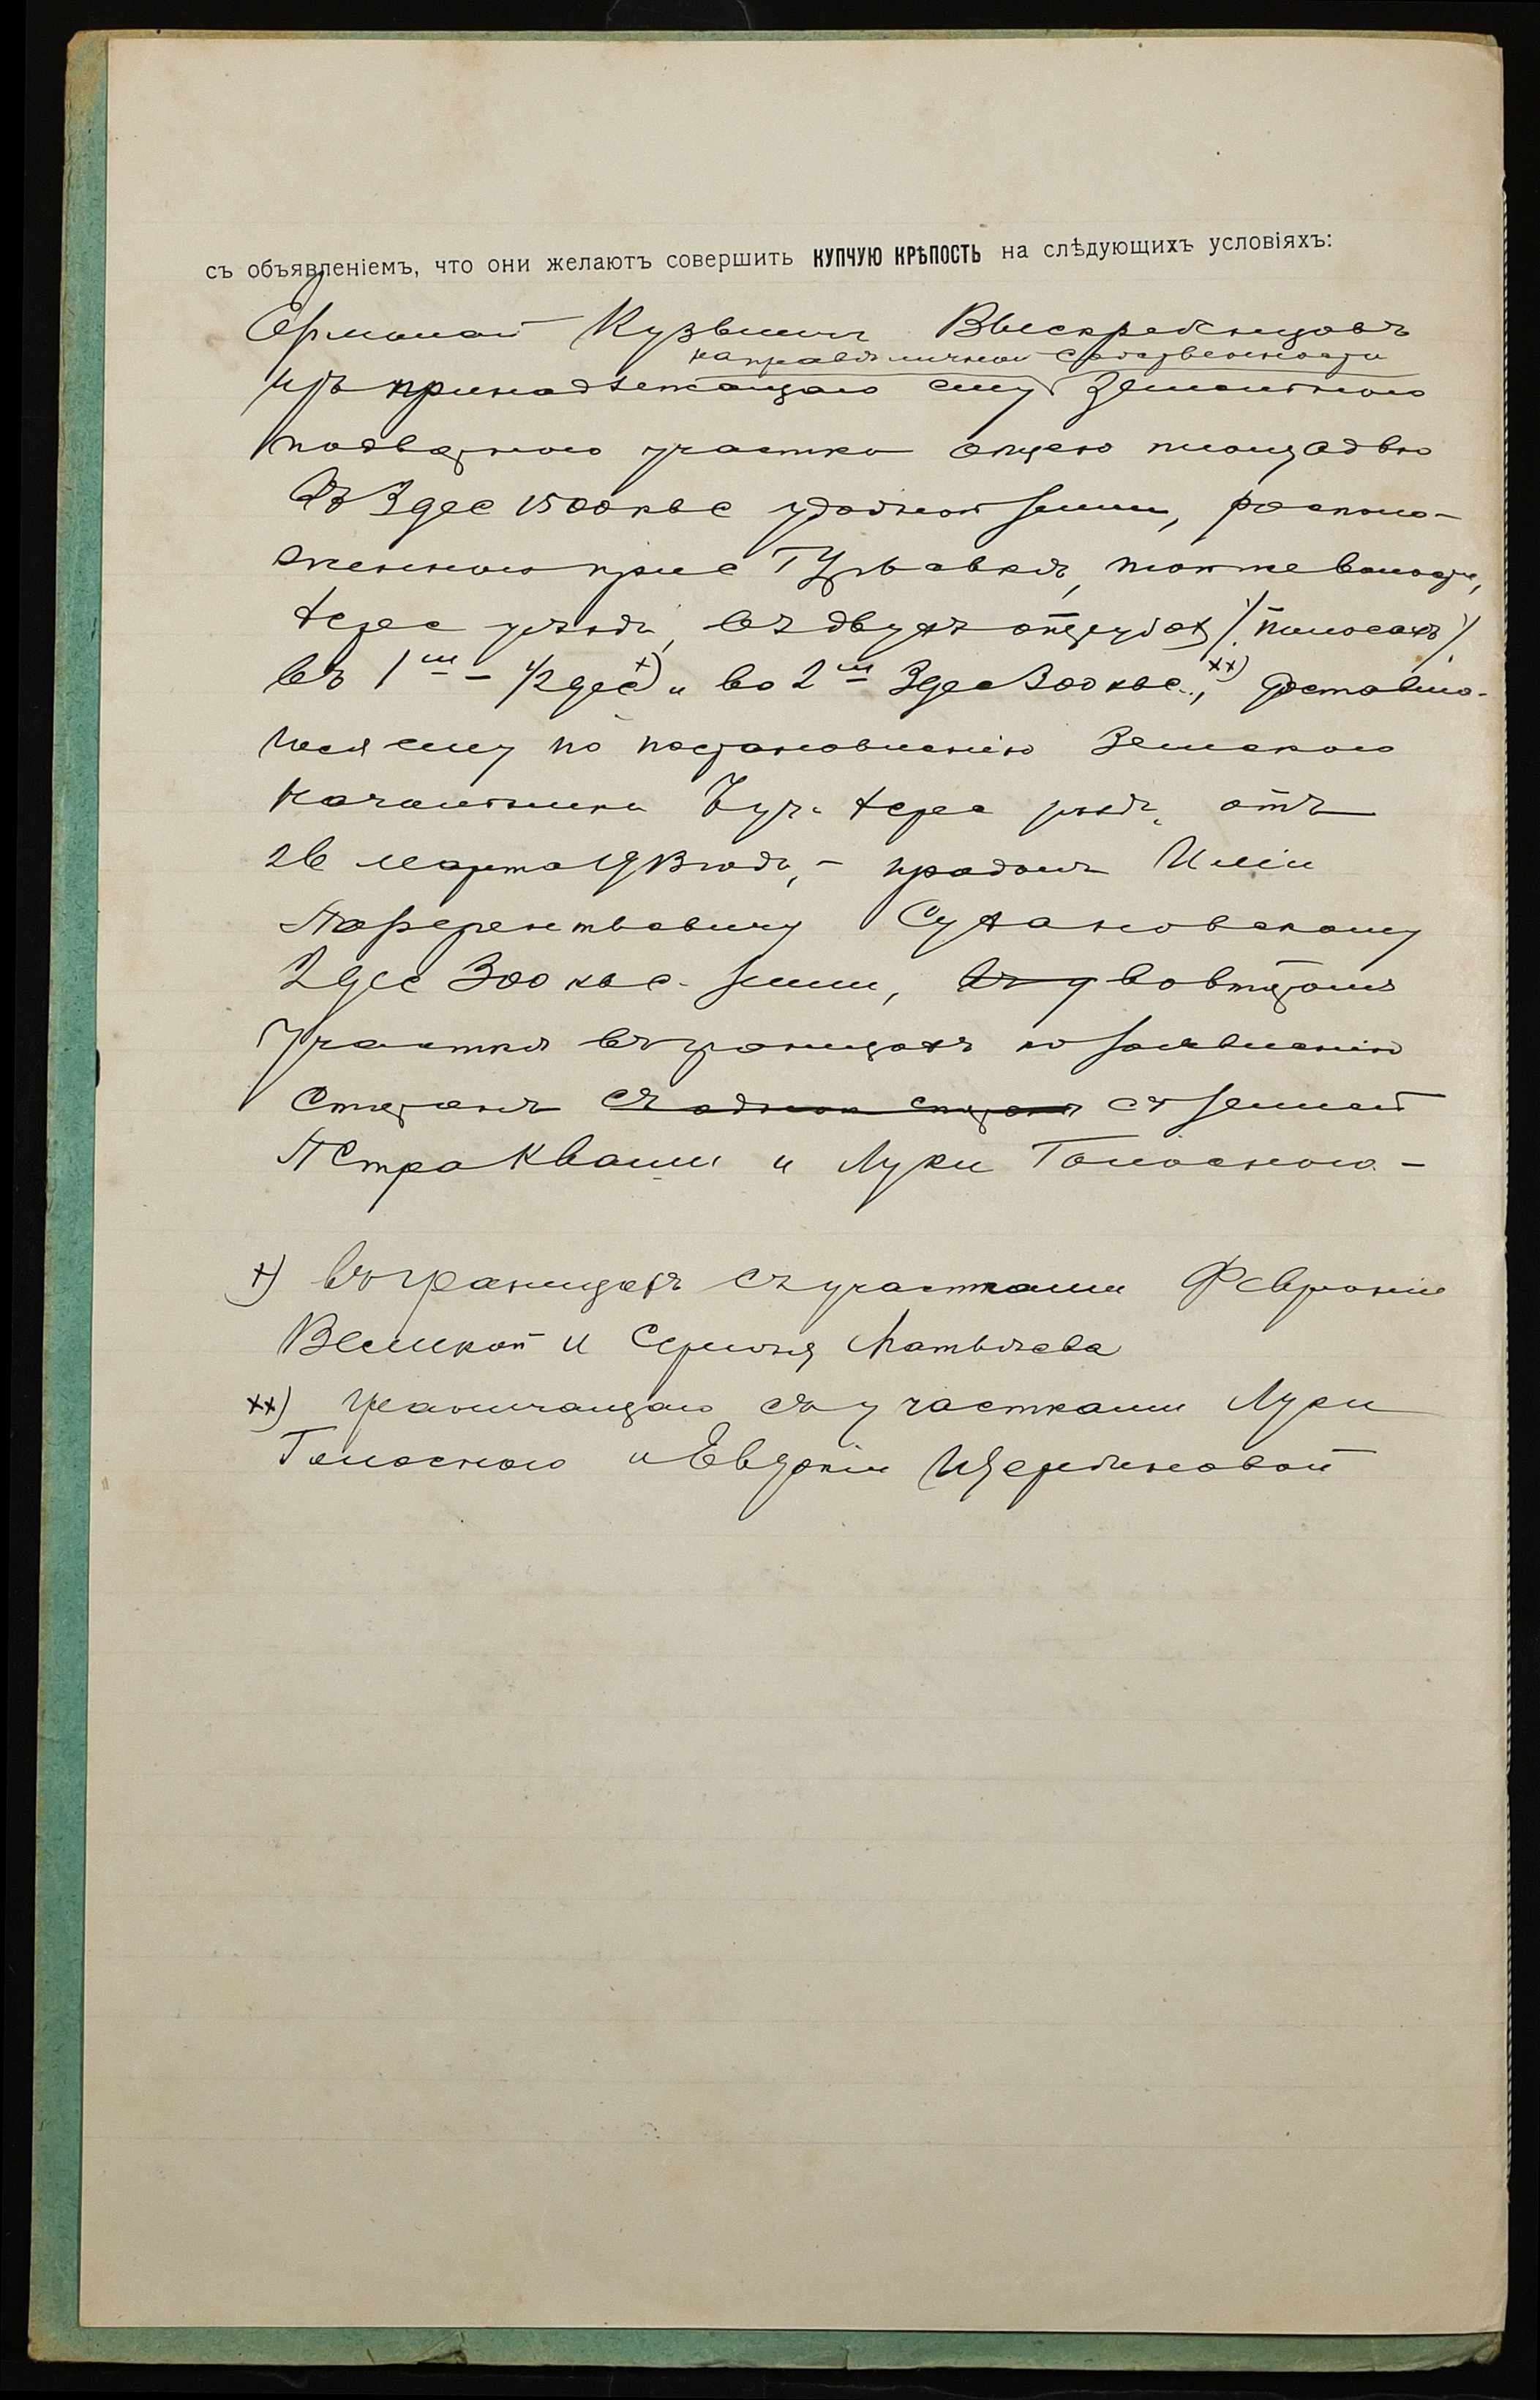 съ объявленіемъ, что они желаютъ совершить КУПЧУЮ КРѢПОСТЬ на слѣдующихъ условіяхъ:
Ермолай Кузьмичъ Выскребенцовъ
на правѣ личной собственности
изъ принадлежащаго ему земельного
надѣльного участка общею площадью
въ 3 дес 1500 кв с удобной земли, располо-
женного при с Гурьевкѣ, той же волости,
Херс уѣзда, въ двухъ отрубах /полосахъ/
въ 1ый – 1/2 дес +) и во 2ой 3 дес 300 кв с., ++) доставша-
гося ему по постановленію Земскаго
Начальника уч. Херс уѣзда, отъ
26 марта 1913 года, – продалъ Иліи
Терентьевичу Сухановскому
2 дес 300 кв с. земли, во второмъ
участкѣ въ границахъ по заявленію
сторонъ съ одной стороны съ землей
Петра Кваши и Луки Голосного –
+) въ границахъ съ участками Февроніи
Великой и Сергѣя Матвѣева
++) граничащаго съ участками Луки
Голосного и Евдокіи Щербиновой